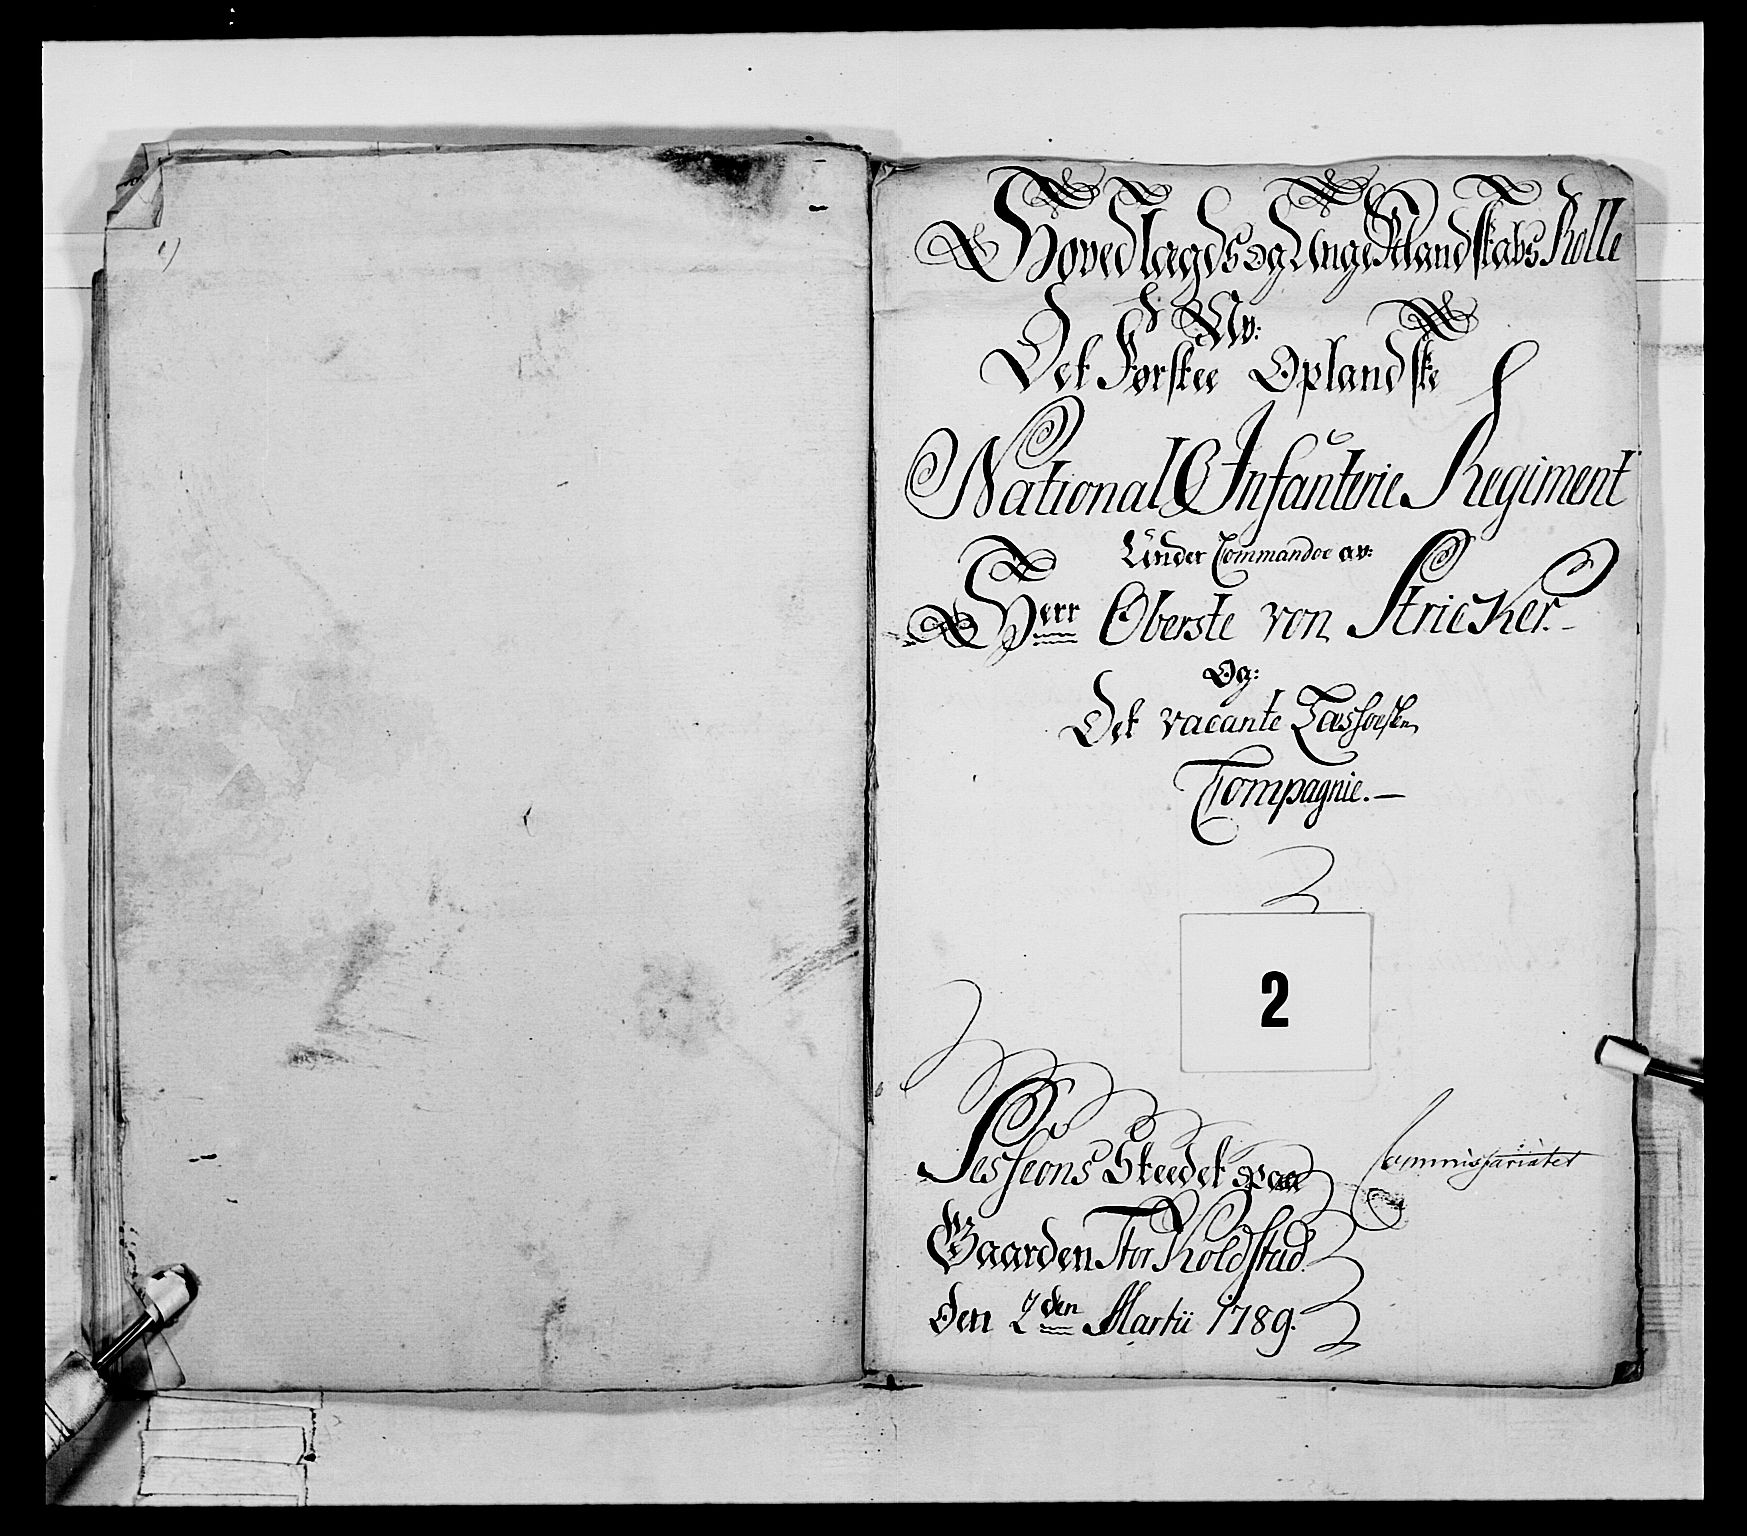 Hovedlægds og Unge Mandskabs Rolle
Av:
Det Førstee Oplandske
National Infanterie Regiment
Under Commandoe av:
Herr Oberste von Stricker.
Og:
Det vacante Læssøeske
Compagnie.—
2
Sessions Skeedet paa
Commissariatet
Gaarden Stor Koldstad.
den 2den Martii 1789.